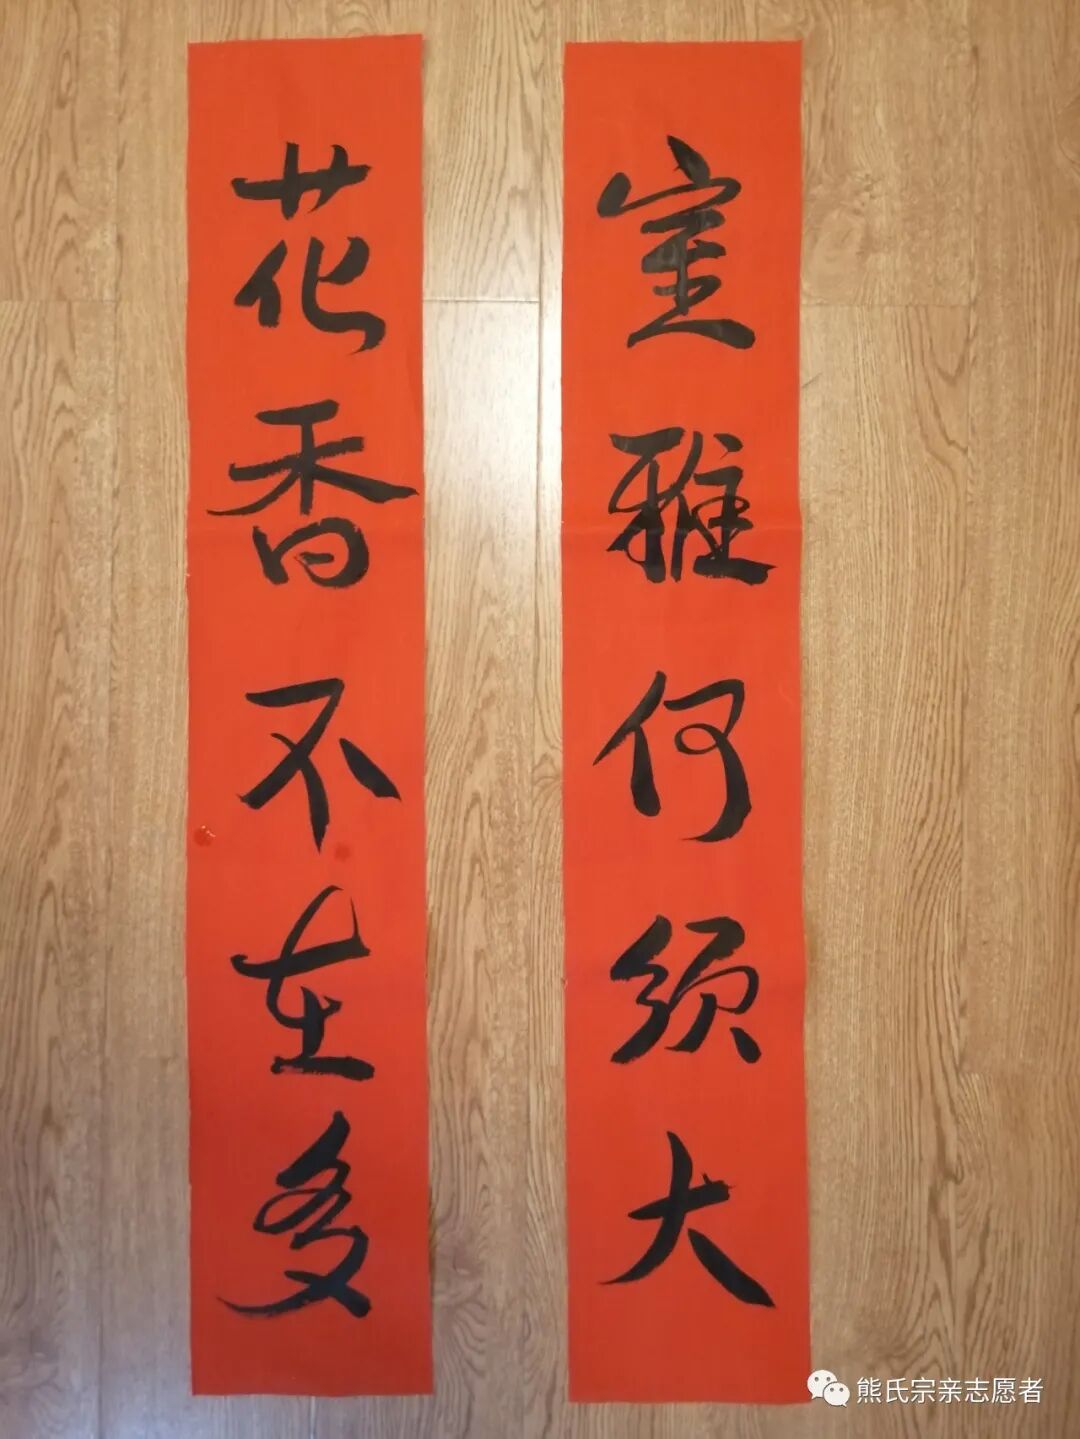 室雅何须大
花香不在多
熊氏宗亲志愿者